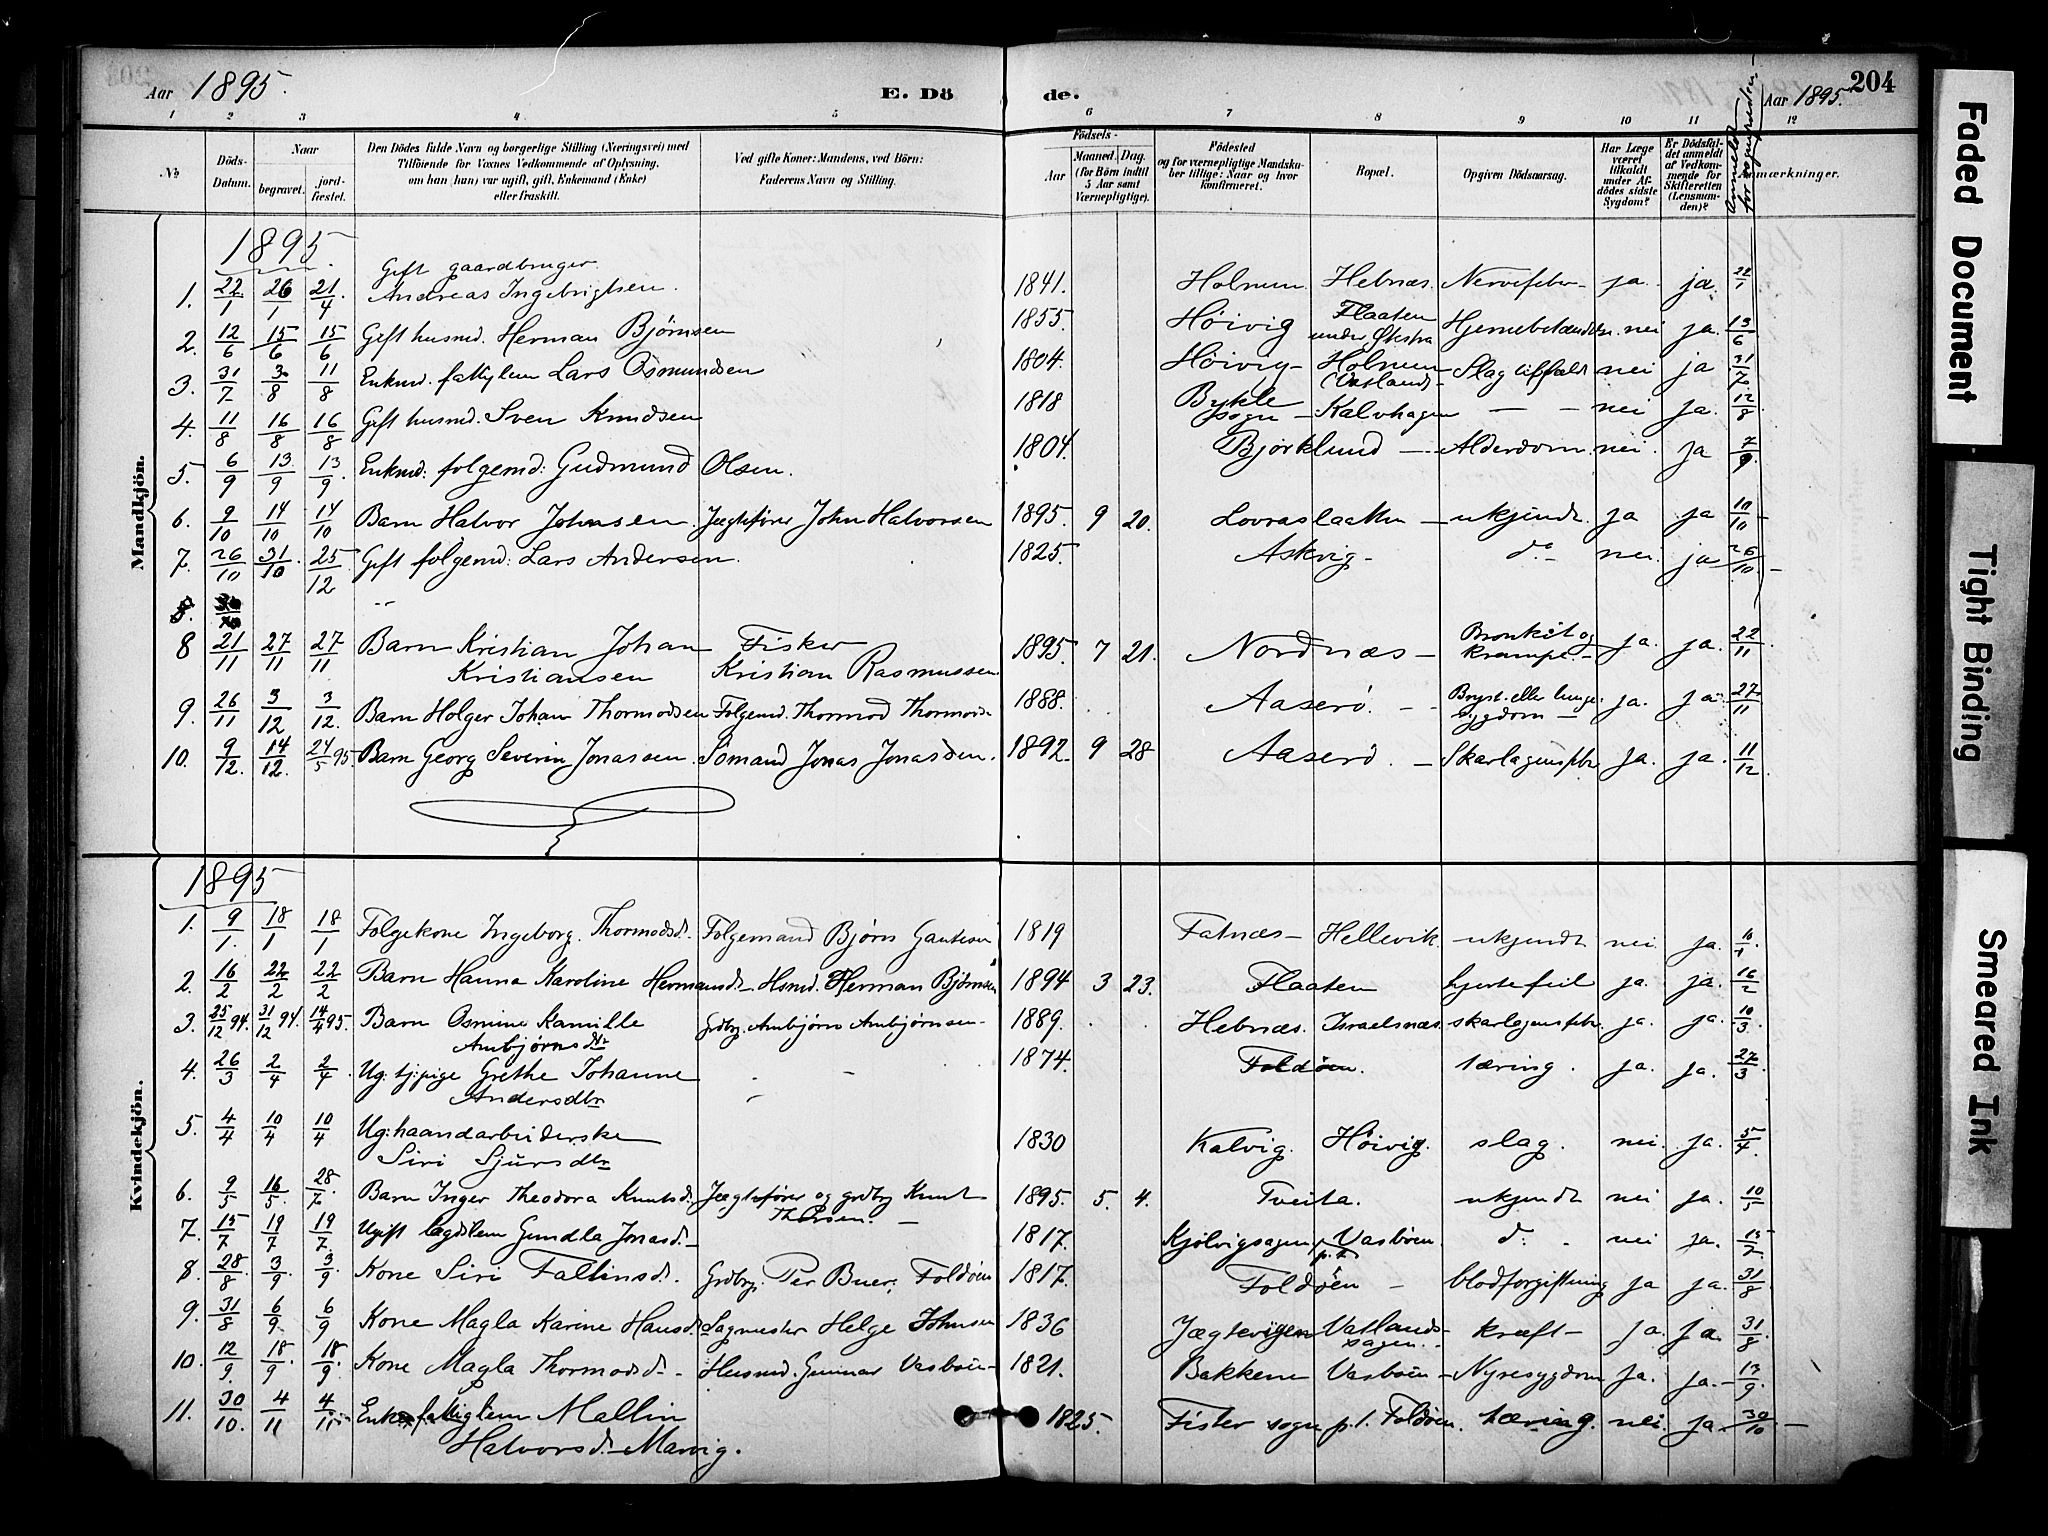 Aar 1895. E. Dö de. Aar 1895. 204
1 2 3 4 5 6 7 8 9 10 11 12
№
Döds-Datum.
Naar
begravet.
jord-fæstet.
Den Dödes fulde Navn og borgerlige Stilling (Næringsvei) med
Tilföiende for Voxnes Vedkommende af Oplysning,
om han (hun) var ugift, gift, Enkemand (Enke)
eller fraskilt.
Ved gifte Koner: Mandens, ved Börn:
Faderens Navn og Stilling.
Födsels-
Aar
Maaned. Dag.
(for Börn indtil
5 Aar samt
Værnepligtige).
Födested
og for værnepligtige Mandska-
ber tillige: Naar og hvor
konfirmeret.
Bopæl.
Opgiven Dödsaarsag.
Har Læge
været
tilkaldt
under Af-
dödes sidste
Sygdom?
Er Dödsfal-
det anmeldt
af Vedkom-
mende for
Skifteretten
(Lensman-
den)?
Anmeldt
for sognepræsten
Anmærkninger.
Mandkjön.
1895
1. 22/1 26/1 21/4. Gift gaardbruger. Andreas Ingebrigtsen. 1841. Holmen Hebnæs. Nervefeber - ja. ja. 22/1
2. 12/6 15/6 15/6 Gift husmd. Herman Bjørnsen 1855. Høivig Flaaten under Økstra Hjernebetændelse. nei ja. 13/6
3. 31/7 3/8 11/8 Enkmd. fattiglem Lars Osmundsen 1804. Høivig - Holmen (Vatland) - Slagtilfæld nei ja 31/7
4. 11/8 16/8 16/8 Gift husmd. Sven Knudsen 1818 Bykle sogn - Kalvhagen - - nei ja. 12/8
5. 6/9 13/9 13/9. Enkmd: folgemd: Gudmund Olsen. 1804. Bjørklund - Alderdom. nei. ja 7/9
6. 9/10 14/10 14/10 Barn Halvor Johnsen. Jægtefører John Halvorsen 1895. 9 20. Lovraslaatten - ukjendt. ja ja 10/10 -
7. 26/10 31/10. 25/12 Gift folgemd: Lars Andersen. 1825. Askvig - do - nei. ja 26/10. -
8.
8 21/11 27/11 27/11 Barn Kristian Johan Kristiansen Fisker Kristian Rasmussen 1895. 7 21. Nordnæs - Bronkit og krampe. - ja. ja. 22/11
9. 26/11 3/12 3/12. Barn Holger Johan Thormodsen Folgemd. Thormod Thormods. 1888. Aaserø. - - Bryst- eller lunge sygdom - ja. ja. 27/11
10. 9/12. 14/12. 24/5 95. Barn Georg Severin Jonassen. Sømand Jonas Jonassen. 1892. 9 28 Aaserø. - Skarlagensfebr ja. ja. 11/12.
Kvindekjön.
1895
1. 9/1. 18/1 18/1 Folgekone Ingeborg Thormodsd. Folgemand Bjørn Gautesen 1819 Fatnæs - Hellevik. ukjendt nei ja.
2. 16/2 22/2 22/2 Barn Hanna Karoline Hermansd. - Hsmd. Herman Bjørnsen 1894 3 23. Flaaten hjertefeil ja. ja. 16/2
3. 25/12 94. 31/12 94. 14/4 95. Barn Osmine Kamille Ambjørnsdtr Grdbr. Ambjørn Ambjørnsen - 1889. Hebnæs. Israelsnæs. skarlagensfebr. ja. ja. 10/3
4. 26/3 2/4 2/4. Ug: tj:pige Grethe Johanne Andersdtr 1874. Foldøen. tæring. ja. ja. 27/3
5. 4/4 10/4 10/4 Ug: haandarbeiderske Siri Sjursdtr 1830 Kalvig. Høivig. slag. nei. ja. 5/4.
6. 9/5 16/5. 28/7. Barn Inger Theodora Knutsd. Jægtefører og grdbr Knut Thorsen. - 1895. 5. 4. Tveita. ukjendt nei ja. 10/5
7. 15/7 19/7 19/7. Ugift lægdslem Gundla Jonasd. - 1817. Kjølvigsagen Vasbøen. p.t. d: nei ja. 15/7.
8. 28/8 3/9. 3/9. Kone Siri Fallinsd. Grdbr. Per Buer, Foldøen 1817. Foldøen - blodforgiftning ja ja. 31/8
9. 31/8 6/9 6/9 Kone Magla Karine Hansd. Sagmester Helge Johnsen 1836 Jægtevigen Vatlandssagen. kræft - ja. ja. 31/8
10. 12/9. 18/9 18/9. Kone Magla Thormodsd. - Husmd. Gunnar Vasbøen - 1821. Bakkene Vasbøen - Nyresygdom ja. ja. - 13/9.
11. 30/10. 4/11 4/11 Enke fattiglem Mallin Halvorsd. Marvig. 1825. Fister sogn p.t. Foldøen. tæring. nei. ja. 30/10 -
Faded Document
Tight Binding
Smeared Ink